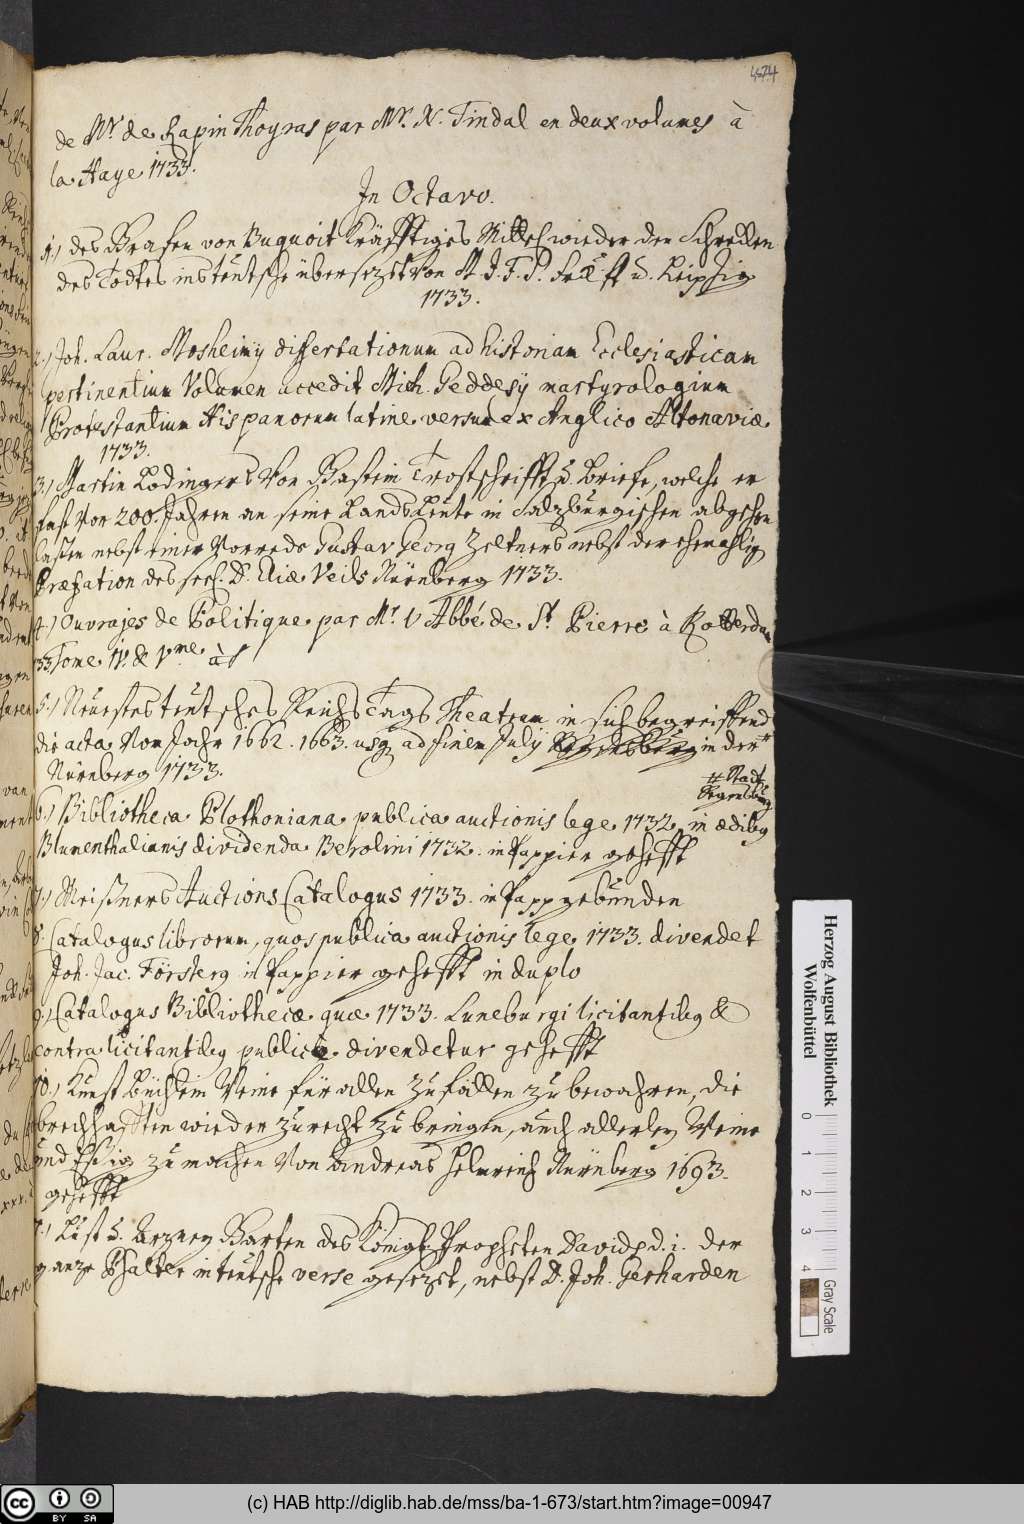 474
de Mr. de Rapin Thoyras par Mr. N. Tindal en deux volumes à
la Haye 1733.
In Octavo.
1.) des Grafen von Buquoit Kräfftiges Mittel wieder den Schrecken
des Todtes ins teutsche übersezt von M. J. F. P. u. Leipzig
1733.
2.) Joh. Laur. Mosheimy dissertationum ad historiam Ecclesiasticam
pertinentium Volumen accedit Mich. Geddesy martyrologium
Protestantium Hispanorum latine versum ex Anglico Altonaviæ
1733.
3.) Martin Lodingers von Gastein Trostschrifft u. Briefe, welche er
fast vor 200. Jahren an seine Landsleute in Salzburgischen abgehen
laßen nebst einer Vorrede Gustav Georg Zeltners nebst der ehemahlig
Præfation des seel. D. Eliæ Veils Nürnberg 1733.
4.) Ouvrajes de Politique par Mr. l'Abbé de St. Pierre à Rotterdam
33. Tome IV. & Vme.
5.) Neuestes teutsches ReichsTags Theatrum in sich begreiffend
die acta vom Jahr 1662. 1663. usq ad finem July Regensburg in der #
Nürnberg 1733.
# Stadt
Regensburg
6.) Bibliotheca Plothoniana publica auctionis lege 1732. in ædibq
Blumenthalianis dividenda Berolini 1732. in Pappier gehefft
7.) Meißners Auctions Catalogus 1733. in Papp gebunden
8. Catalogus librorum, quos publica auctionis lege 1733. divendet
Joh. Jac. Försterg in Pappier gehefft in duplo
9.) Catalogus Bibliothecæ quæ 1733. Luneburgi licitantibq &
contralicitantibq publice divendetur gehefft
10.) Kunst Büchlein Weine für allen Zufällen zu bewahren, die
brechhafften wieder zurecht zu bringen, auch allerley Weine
und Eßig zu machen von Andreas Helmreich Nürnberg 1693.
gehefft
Lust u. Arzney Garten des Königl. Propheten Davids d. i. der
ganze Psalter in teutsche verse gesezet, nebst D. Joh. Gerharden
Herzog August Bibliothek
Wolfenbüttel
0 1 2 3 4
Gray Scale
cc BY SA
(c) HAB http://diglib.hab.de/mss/ba-1-673/start.htm?image=00947